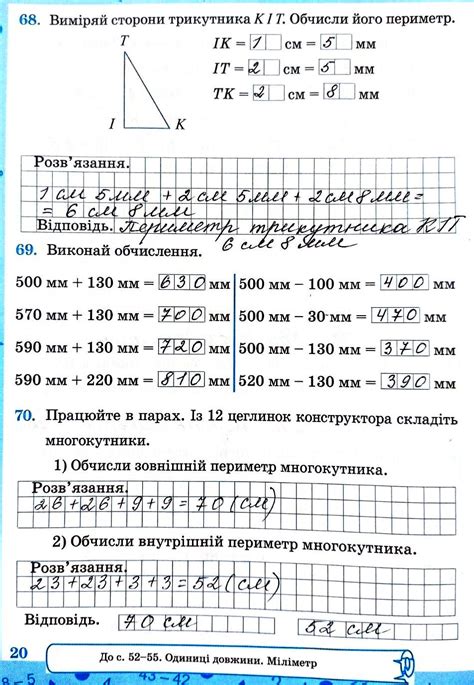 68. Виміряй сторони трикутника КІТ. Обчисли його периметр.
Т
ІК = 1 см = 5 мм
ІТ = 2 см = 5 мм
ТК = 2 см = 8 мм
І К
Розв'язання.
1 см 5 мм + 2 см 5 мм + 2 см 8 мм =
= 6 см 8 мм
Відповідь. Периметр трикутника КІТ
6 см 8 мм
69. Виконай обчислення.
500 мм + 130 мм = 630 мм 500 мм – 100 мм = 400 мм
570 мм + 130 мм = 700 мм 500 мм – 30 мм = 470 мм
590 мм + 130 мм = 720 мм 500 мм – 130 мм = 370 мм
590 мм + 220 мм = 810 мм 520 мм – 130 мм = 390 мм
70. Працюйте в парах. Із 12 цеглинок конструктора складіть
многокутники.
1) Обчисли зовнішній периметр многокутника.
Розв'язання.
26 + 26 + 9 + 9 = 70 (см)
2) Обчисли внутрішній периметр многокутника.
Розв'язання.
23 + 23 + 3 + 3 = 52 (см)
Відповідь. 70 см 52 см
20
До с. 52–55. Одиниці довжини. Міліметр
43–42